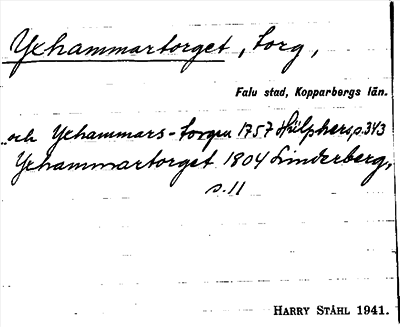 Yxhammartorget, torg,
Falu stad, Kopparbergs län.
"och Yxhammars-torgen 1757 Hülphers, p. 343
Yxhammartorget 1804 Linderberg,
s. 11
HARRY STÅHL 1941.